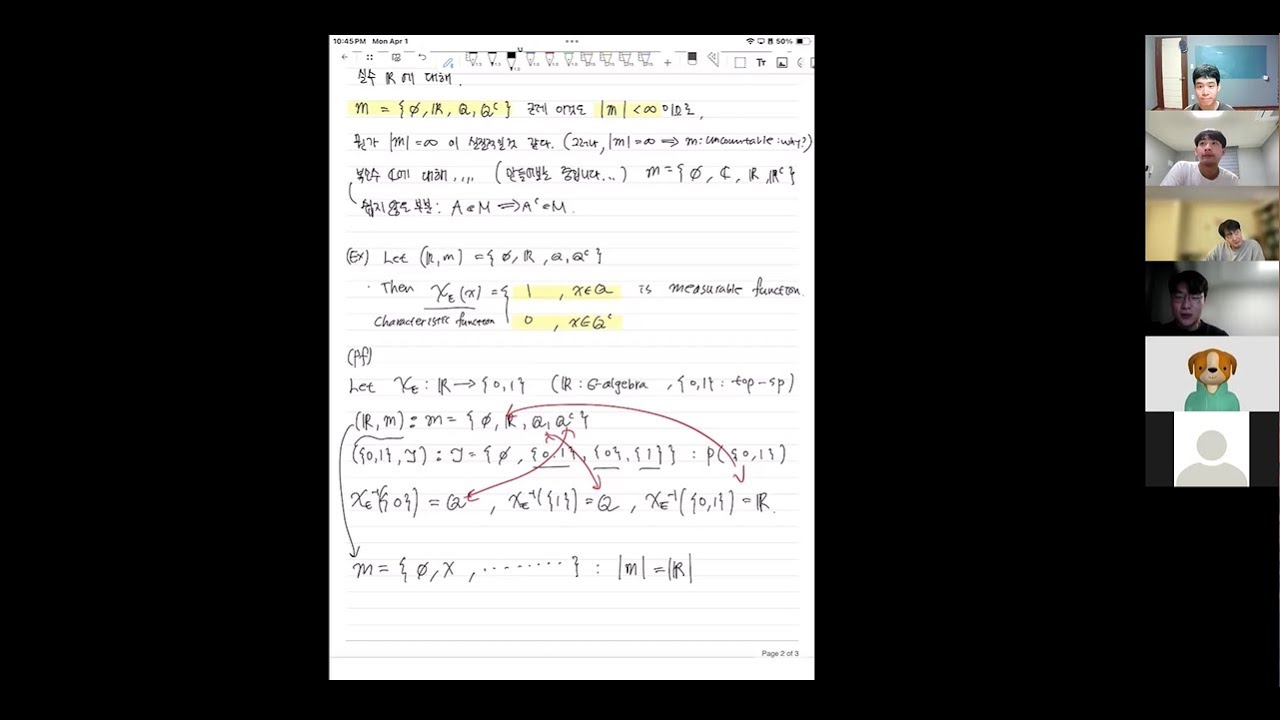 10:45 PM Mon Apr 1 50%
실수 ℝ에 대해.
m = {∅, ℝ, ℚ, ℚᶜ} 근데 이것도 |m| < ∞ 이므로,
뭔가 |m| = ∞ 이 같다. (그러나, |m| = ∞ ⟹ m: uncountable: why?)
복소수 ℂ에 대해, ,,, (만들어봐도 좋습니다...) m = {∅, ℂ, ℝ, ℝᶜ}
쉽지 않은 부분: A ∈ M ⟹ Aᶜ ∈ M.
(Ex) Let (ℝ, m) = {∅, ℝ, ℚ, ℚᶜ}
· Then χ_E(x) = { 1 , x∈ℚ is measurable function.
characteristic function 0 , x∈ℚᶜ
(pf)
Let χ_E : ℝ → {0,1} (ℝ : σ-algebra , {0,1} : top-sp)
(ℝ, m) : m = {∅, ℝ, ℚ, ℚᶜ}
({0,1}, ℑ) : ℑ = {∅, {0,1}, {0}, {1}} : P({0,1})
χ_E⁻¹({0}) = ℚᶜ , χ_E⁻¹({1}) = ℚ , χ_E⁻¹({0,1}) = ℝ.
m = {∅, X, ········} : |m| = |ℝ|
Page 2 of 3